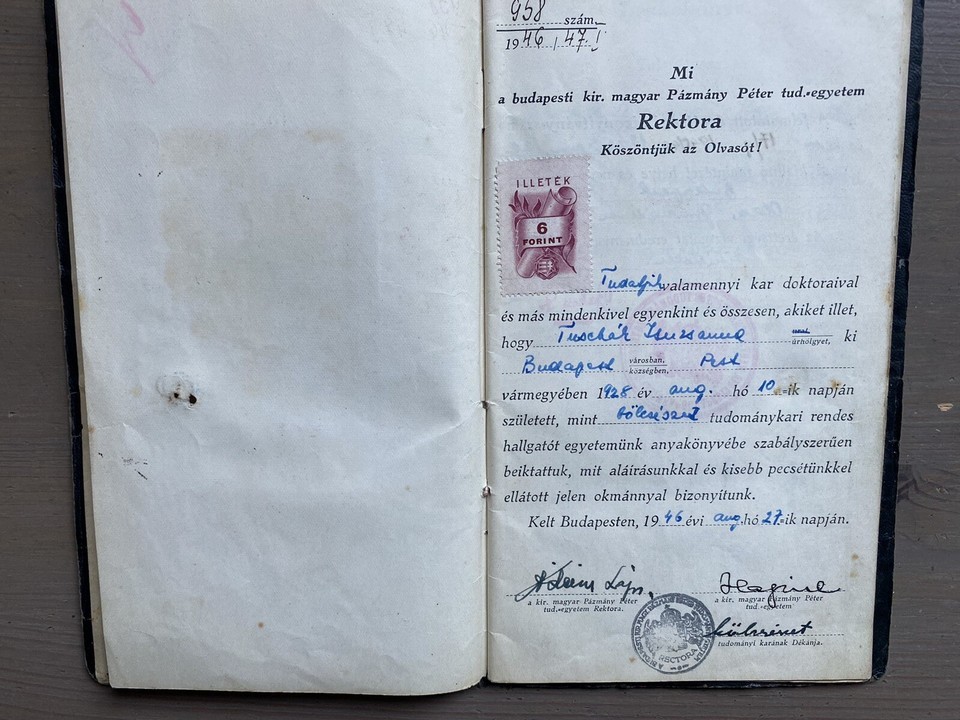 958 szám.
1946/47. I
Mi
a budapesti kir. magyar Pázmány Péter tud.-egyetem
Rektora
Köszöntjük az Olvasót!
ILLETÉK
6
FORINT
Tudatjuk valamennyi kar doktoraival
és más mindenkivel egyenkint és összesen, akiket illet,
hogy Tuschák Zsuzsanna úrhölgyet, ki
Budapest városban, községben, Pest
vármegyében 1928 év aug. hó 10-ik napján
született, mint bölcsészet tudománykari rendes
hallgatót egyetemünk anyakönyvébe szabályszerűen
beiktattuk, mit aláírásunkkal és kisebb pecsétünkkel
ellátott jelen okmánnyal bizonyítunk.
Kelt Budapesten, 1946 évi aug. hó 27-ik napján.
a kir. magyar Pázmány Péter
tud.-egyetem Rektora.
a kir. magyar Pázmány Péter
tud.-egyetem
tudományi karának Dékánja.
RECTORA